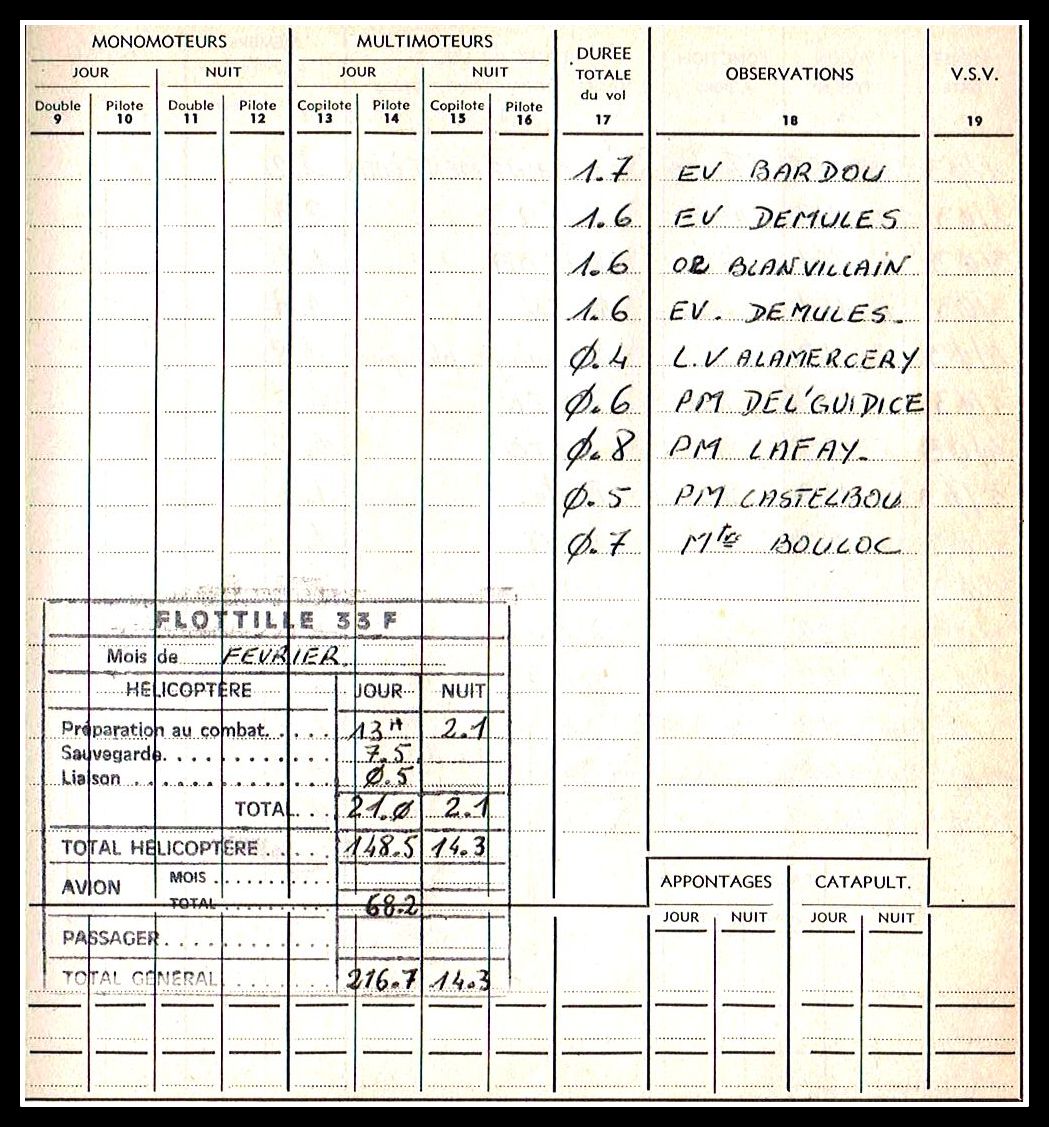 MONOMOTEURS MULTIMOTEURS DUREE TOTALE du vol OBSERVATIONS V.S.V.
JOUR NUIT JOUR NUIT
Double Pilote Double Pilote Copilote Pilote Copilote Pilote
9 10 11 12 13 14 15 16 17 18 19
1.7 EV BARDOU
1.6 EV DEMULES
1.6 OE BLANVILLAIN
1.6 EV. DEMULES.
Ø.4 L.V ALAMERCERY
Ø.6 PM DEL'GUIDICE
Ø.8 PM LAFAY.
Ø.5 PM CASTELBOU
Ø.7 Mtre BOULOC
FLOTTILLE 33 F
Mois de FEVRIER.
HÉLICOPTÈRE JOUR NUIT
Préparation au combat. . . . . 13H 2.1
Sauvegarde. . . . . . . . . . . . 7.5
Liaison . . . . . . . . . . . . . . Ø.5
TOTAL. . . 21.Ø 2.1
TOTAL HÉLICOPTÈRE . . . . . 148.5 14.3
AVION MOIS . . . . . . . . . .
TOTAL . . . . . . . . . 68.2
PASSAGER. . . . . . . . . . . .
TOTAL GÉNÉRAL. . . . . . . . 216.7 14.3
APPONTAGES CATAPULT.
JOUR NUIT JOUR NUIT